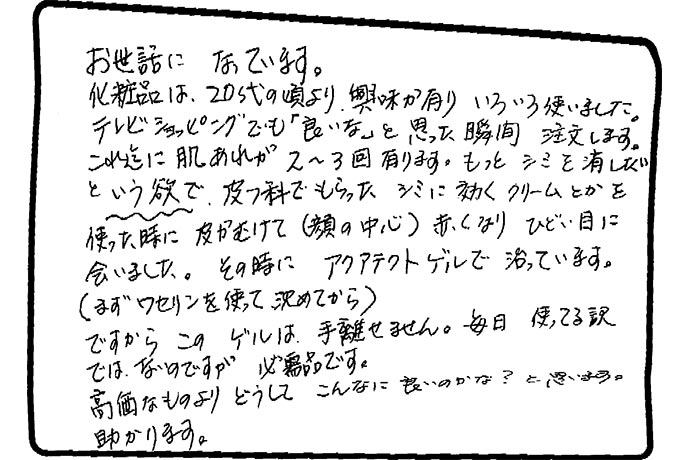 お世話に なっています。
化粧品は、20代の頃より、興味が有り いろいろ使いました。
テレビショッピングでも「良いな」と 思った瞬間 注文します。
これ迄に 肌あれが 2〜3回有ります。もっと シミを消したい
という欲で、皮フ科でもらった シミに効くクリームとかを
使った時に 皮がむけて(顔の中心)赤くなり ひどい目に
会いました。その時に アクアテクトゲルで 治っています。
(まずワセリンを使って 沈めてから)
ですから この ゲルは、手離せません。毎日 使ってる訳
では、ないのですが 必需品です。
高価なものより どうして こんなに良いのかな?と思います。
助かります。